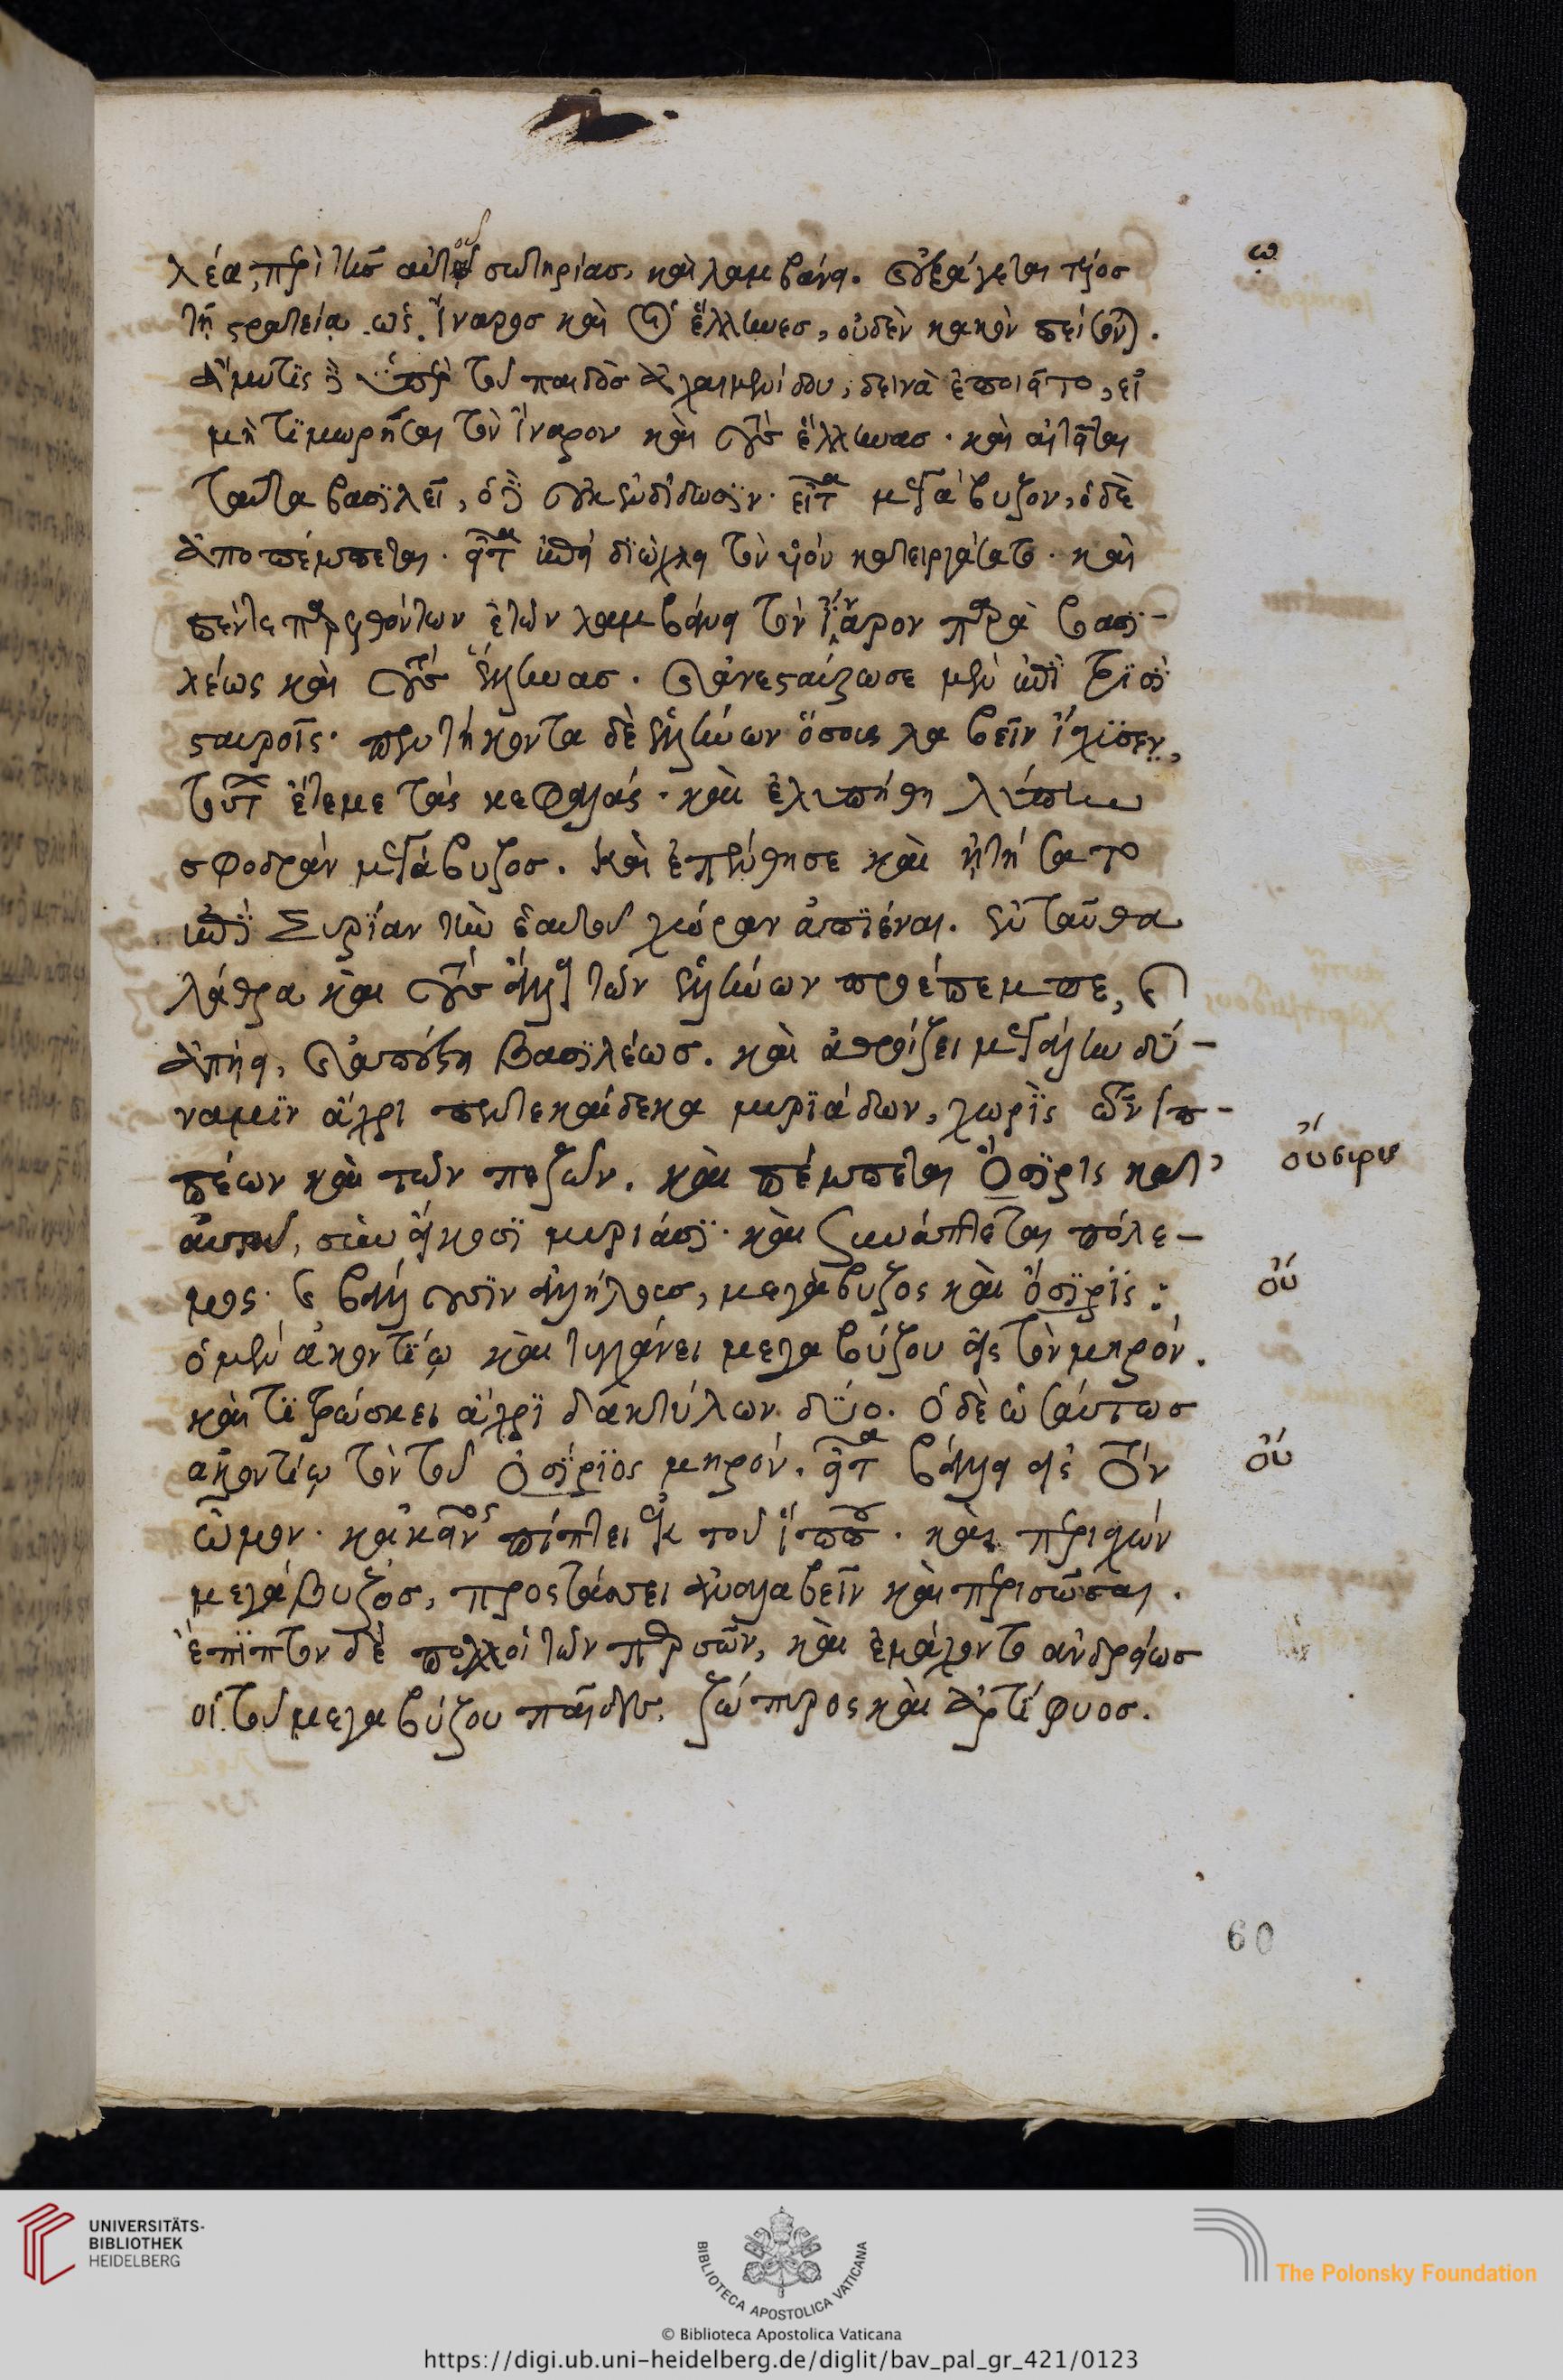 λέα, περὶ τῆς αὐτοῦ σωτηρίας, καὶ λαμβάνει. καὶ ἐξάγεται τέος
τῇ στρατείᾳ ὡς Ἴναρος καὶ οἱ ἕλληνες, οὐδὲν κακὸν πείσονται.
Ἄμυτϊς δὲ ὑπὲρ τοῦ παιδὸς ἀχαιμενίδου, δεινὰ ἐποιεῖτο, εἰ
μὴ τϊμωρήσεται τὸν ἴναρον καὶ τοὺς ἕλληνας. καὶ αἰτεῖται
ταῦτα βασϊλεῖ, ὁ δὲ οὐκ ἐνδίδωσϊν. εἶτα μεγάβυζον, ὁ δὲ
ἀποπέμπεται. εἶτα ἐπεὶ διώχλει τὸν υἱόν κατειργάσατο. καὶ
πέντε παρελθόντων ἐτῶν λαμβάνει τὸν ἴναρον παρὰ βασϊ-
λέως καὶ τοὺς ἕλληνας. καὶ ἀνεσταύρωσε μὲν ἐπὶ τρϊσὶ
σταυροῖς. πεντήκοντα δὲ ἑλλήνων ὅσους λαβεῖν ἴσχϋσεν,
τούτων ἔτεμε τὰς κεφαλάς. καὶ ἐλυπήθη λύπην
σφοδρὰν μεγάβυζος. καὶ ἐπένθησε καὶ ᾐτήσατο
ἐπὶ Συρΐαν τὴν ἑαυτοῦ χώραν ἀπϊέναι. ἐνταῦθα
λάθρα καὶ τοὺς ἄλλους τῶν ἑλλήνων προέπεμπε, καὶ
ἀπήει, καὶ ἀπέστη βασϊλέως. καὶ ἀθροίζει μεγάλην δύ-
ναμϊν ἄχρι πεντεκαίδεκα μυρϊάδων, χωρὶς τῶν ἱπ-
πέων καὶ τῶν πεζῶν. καὶ πέμπεται Ὄσϊρις κατ'
αὐτοῦ, σὺν εἴκοσϊ μυριάσϊ. καὶ συνάπτεται πόλε-
μος. καὶ βάλλουσϊν ἀλλήλους, μεγάβυζος καὶ ὄσϊρϊς:
ὁ μὲν ἀκοντΐῳ καὶ τυγχάνει μεγαβύζου εἰς τὸν μηρόν.
καὶ τϊτρώσκει ἄχρϊ δακτύλων δύο. ὁ δὲ ὡσαύτως
ἀκοντίῳ τὸν τοῦ Ὀσΐρϊος μηρόν. εἶτα βάλλει εἰς τὸν
ὦμον. κἀκεῖνος πίπτει ἐκ τοῦ ἵππου. καὶ περισχὼν
μεγάβυζος, προστάσσει ἀναλαβεῖν καὶ περισῶσαι.
ἔπϊπτον δὲ πολλοὶ τῶν περσῶν, καὶ ἐμάχοντο ἀνδρείως
οἱ τοῦ μεγαβύζου παῖδες. ζώπυρος καὶ ἀρτΐφυος.
ω
οὔσιρις
οὔ
οὔ
60
UNIVERSITÄTS-
BIBLIOTHEK
HEIDELBERG
BIBLIOTECA APOSTOLICA VATICANA
The Polonsky Foundation
© Biblioteca Apostolica Vaticana
https://digi.ub.uni-heidelberg.de/diglit/bav_pal_gr_421/0123